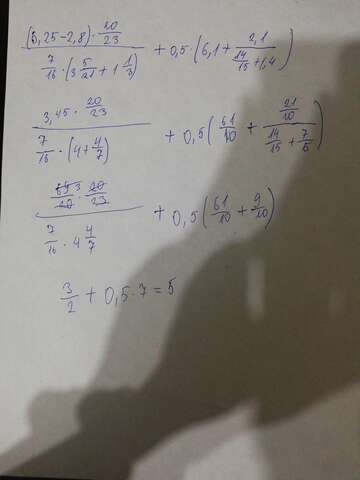 ((5,25-2,8)·20/23)/(7/16·(3 5/21+1 1/3)) + 0,5·(6,1+2,1/(14/15+1,4))
(3,45·20/23)/(7/16·(4+4/7)) + 0,5(61/10+(21/10)/(14/15+7/5))
(69 3/20·20/23)/(7/16·4 4/7) + 0,5(61/10+9/10)
3/2+0,5·7=5